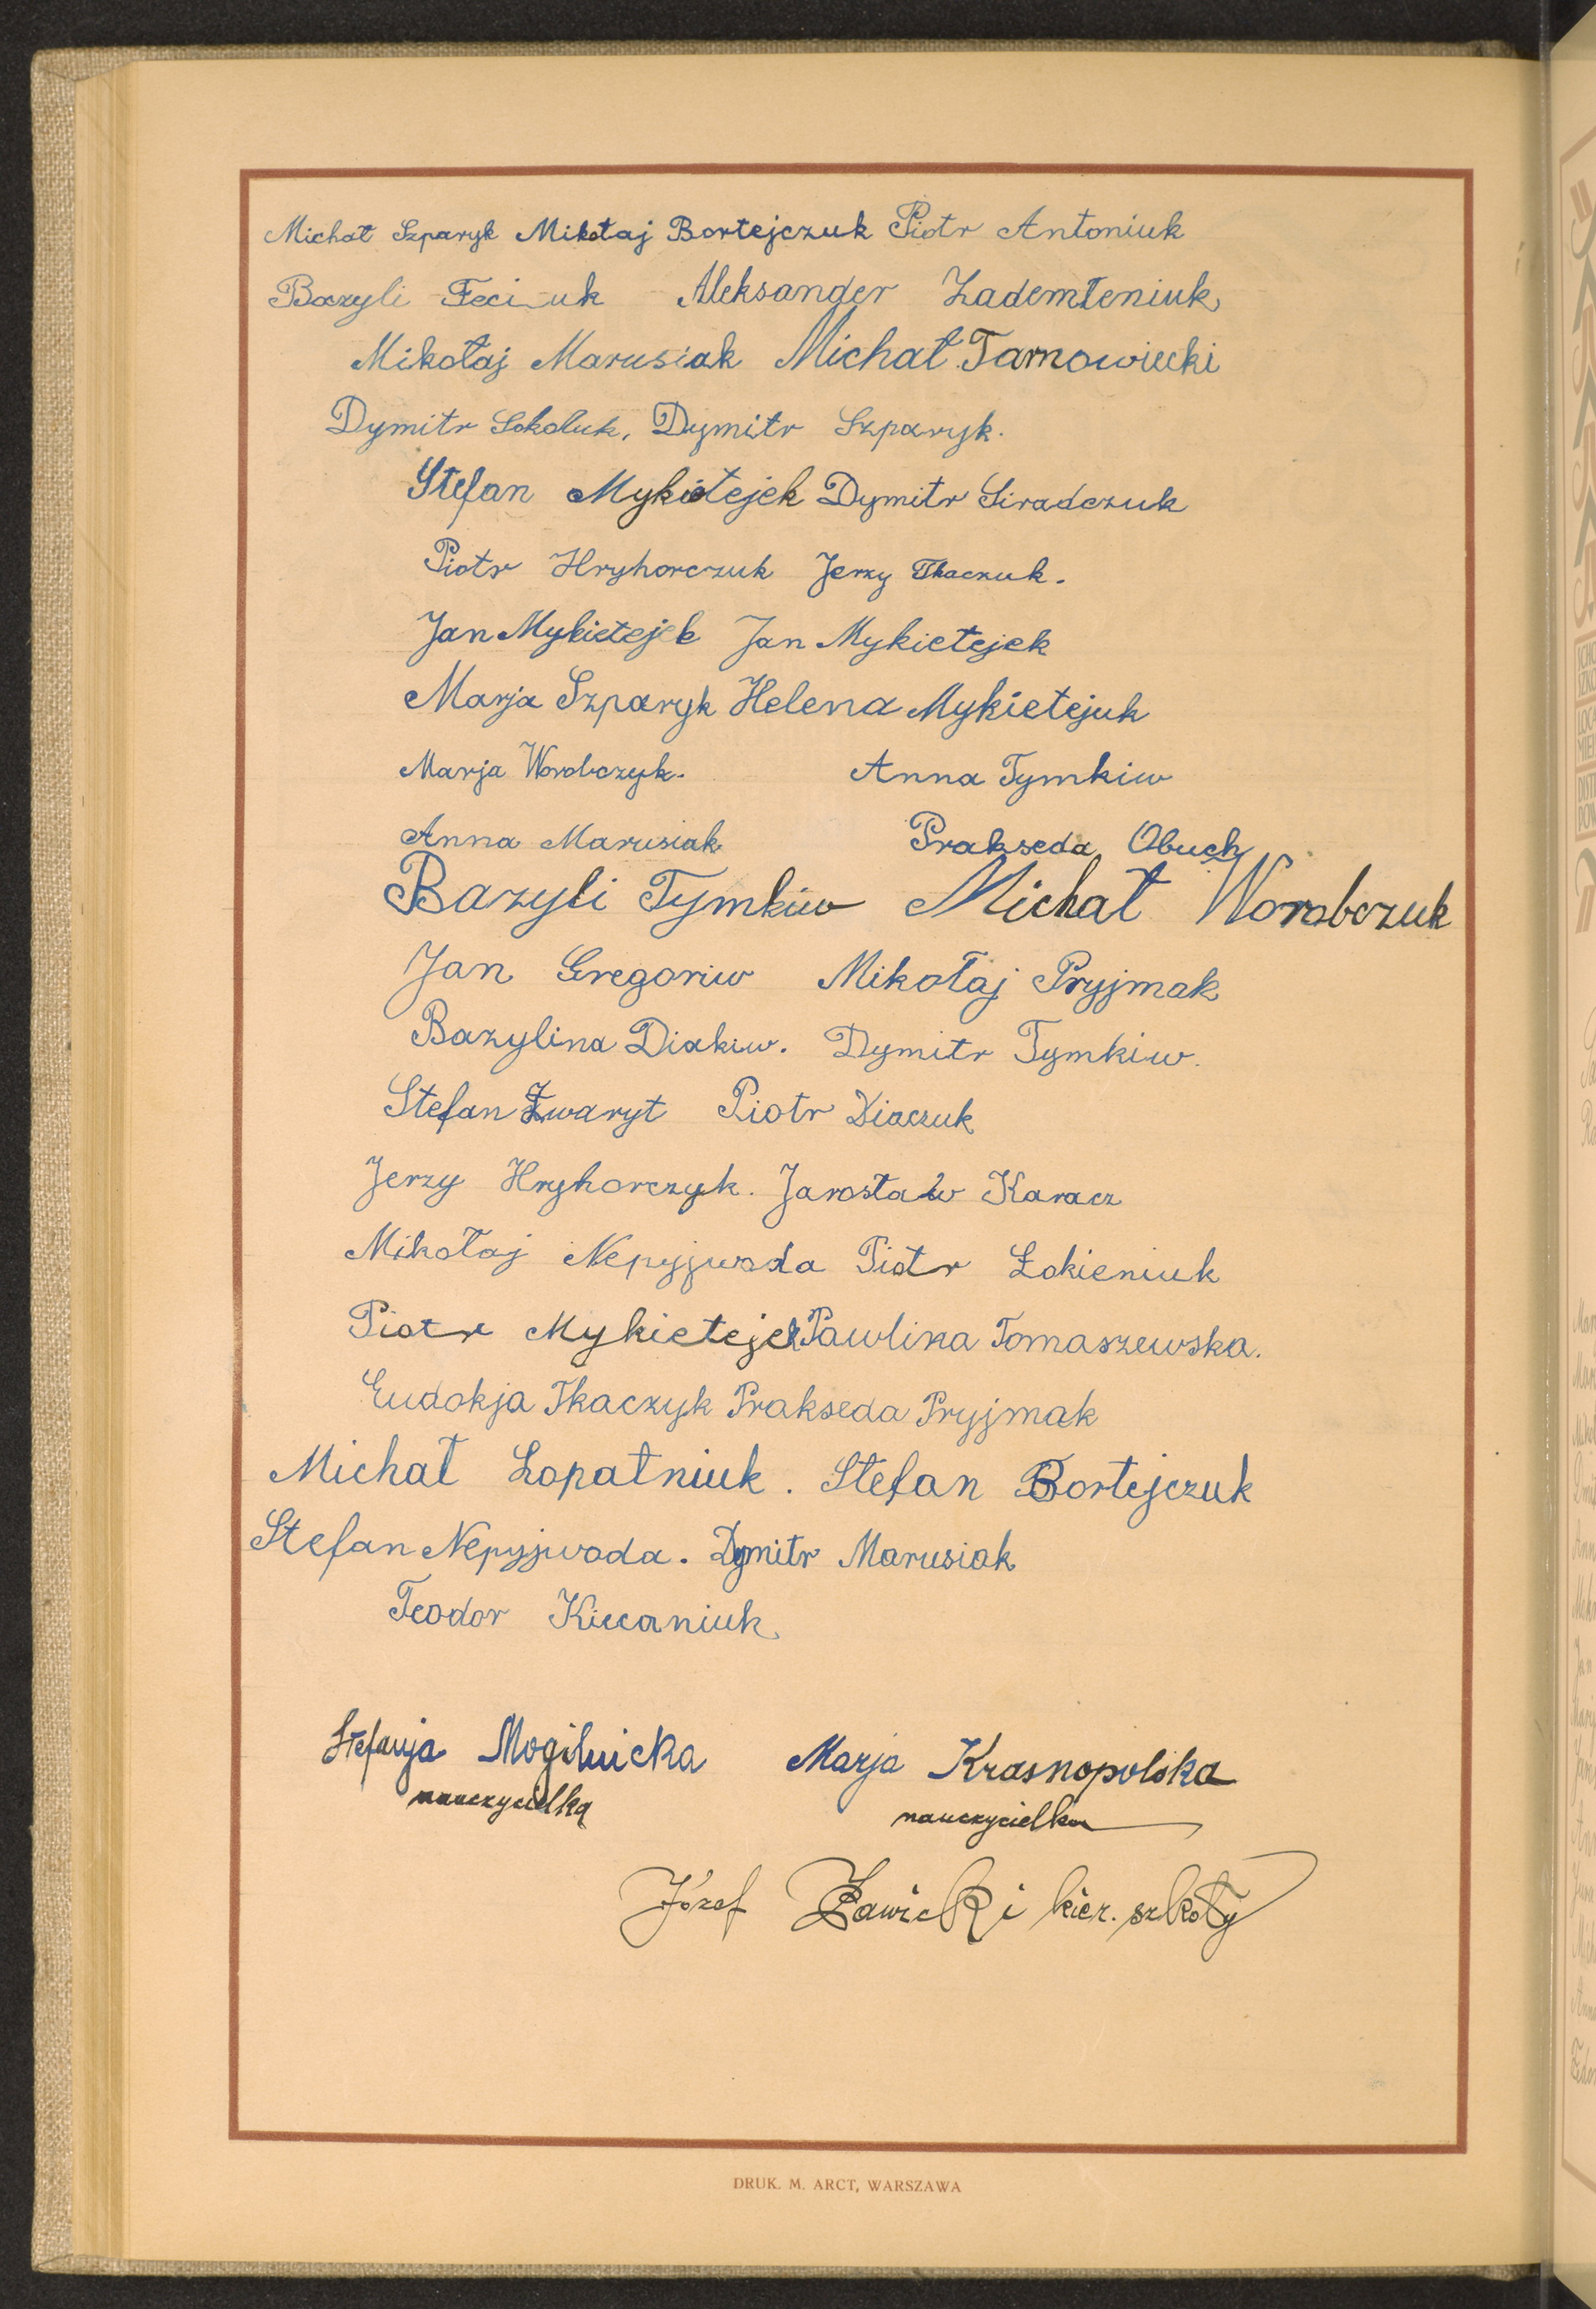 Michał Szparyk Mikołaj Bortejczuk Piotr Antoniuk
Bazyli Feciuk Aleksander Zademleniuk
Mikołaj Marusiak Michał Tarnowiecki
Dymitr Sokoluk, Dymitr Szparyk.
Stefan Mykietejek Dymitr Siradczuk
Piotr Hryhorczuk Jerzy Tkaczuk.
Jan Mykietejek Jan Mykietejek
Marja Szparyk Helena Mykietejuk
Marja Worobczyk. Anna Tymkiw
Anna Marusiak Prakseda Obuch
Bazyli Tymkiw Michał Worobczuk
Jan Gregoriw Mikołaj Pryjmak
Bazylina Diakiw. Dymitr Tymkiw.
Stefan Zwaryt Piotr Diaczuk
Jerzy Hryhorczyk. Jarosław Karacz
Mikołaj Nepyjwoda Piotr Łokieniuk
Piotr Mykietejek Pawlina Tomaszewska.
Eudokja Tkaczyk Prakseda Pryjmak
Michał Łopatniuk. Stefan Bortejczuk
Stefan Nepyjwoda. Dymitr Marusiak
Teodor Kiecaniuk
Stefanja Mogilnicka Marja Krasnopolska
nauczycielka nauczycielka
Józef Zawicki kier. szkoły
DRUK. M. ARCT, WARSZAWA